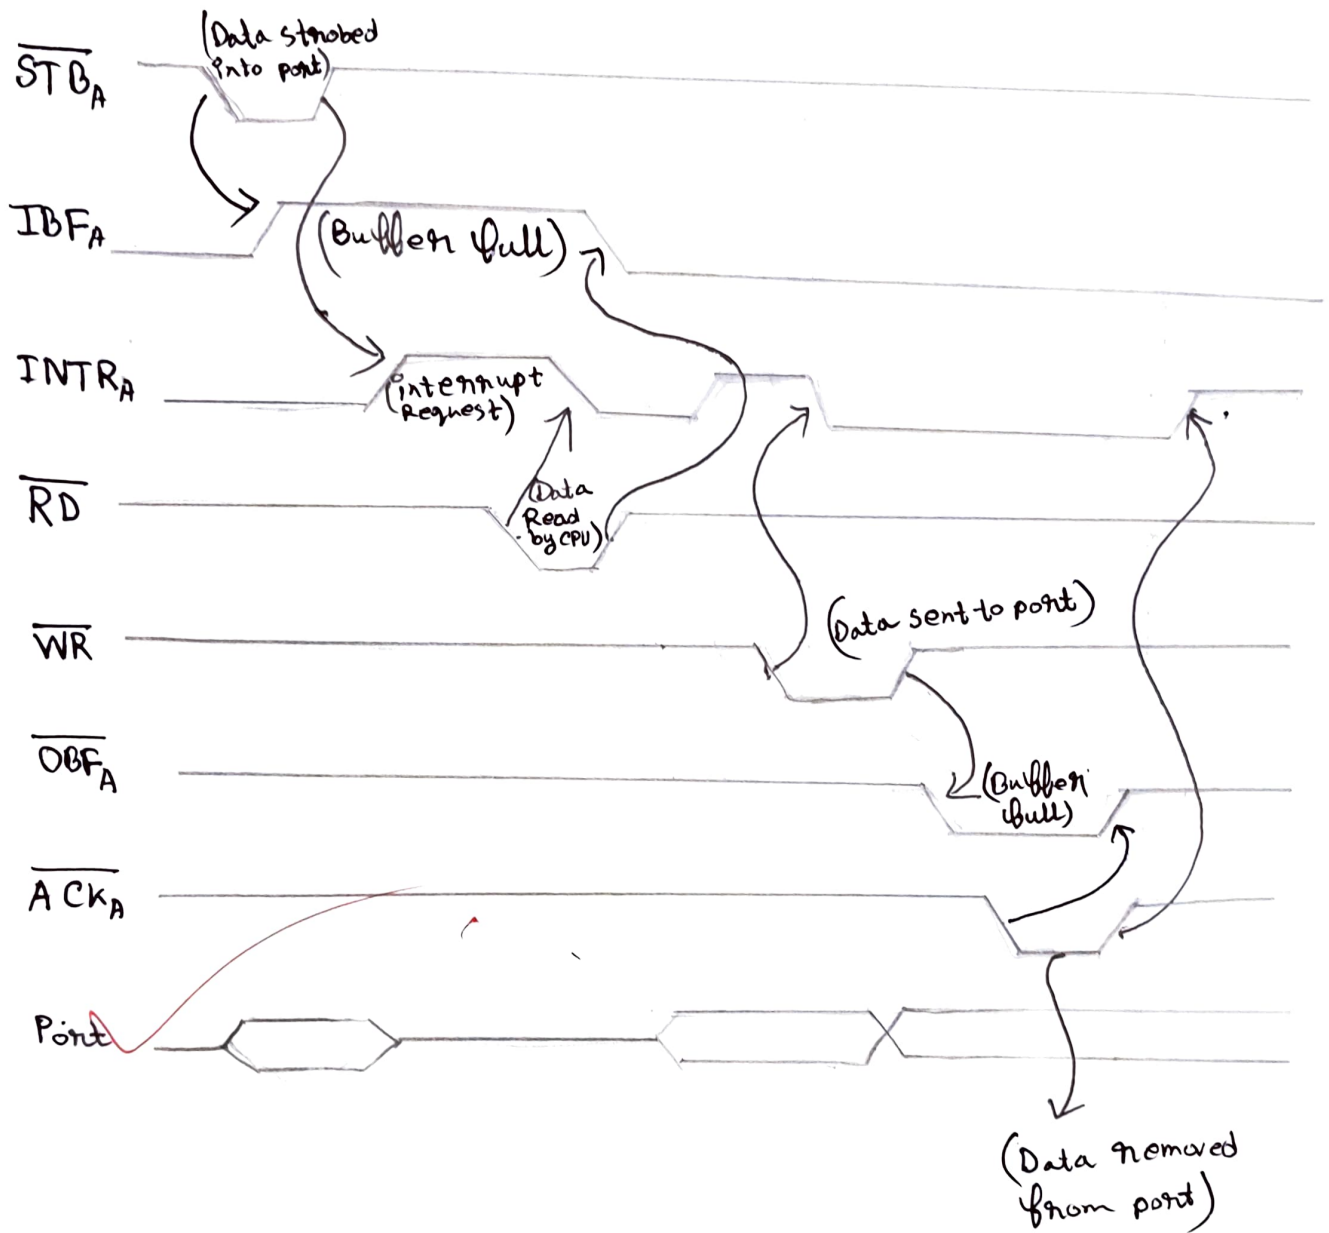 (Data strobed
into port)
S̅T̅B̅A
IBFA
(Buffer full)
INTRA
(interrupt
Request)
R̅D̅
(Data
Read
by CPU)
W̅R̅
(Data sent to port)
O̅B̅F̅A
(Buffer
full)
A̅C̅K̅A
Port
(Data removed
from port)